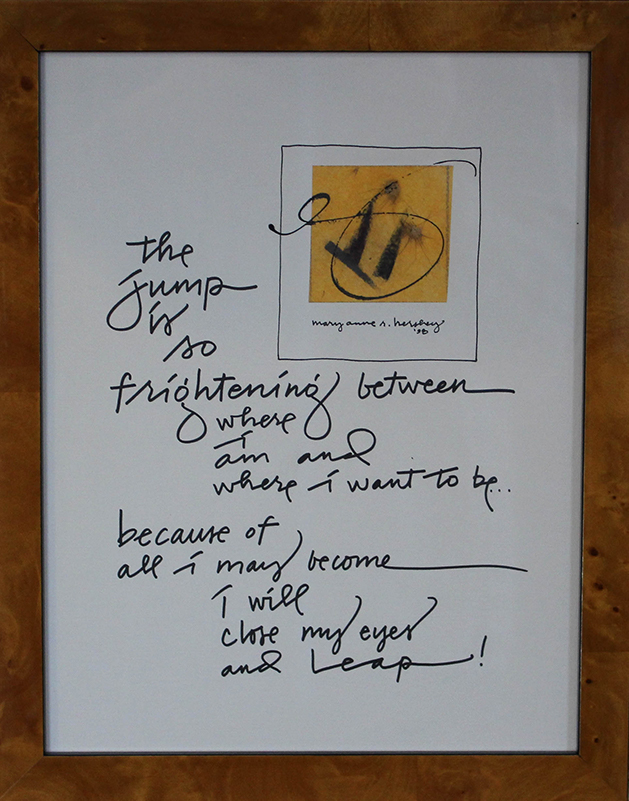 mary anne r. hershey
'98
the
jump
is
so
frightening between
where
i
am and
where i want to be...
because of
all i may become
i will
close my eyes
and Leap!